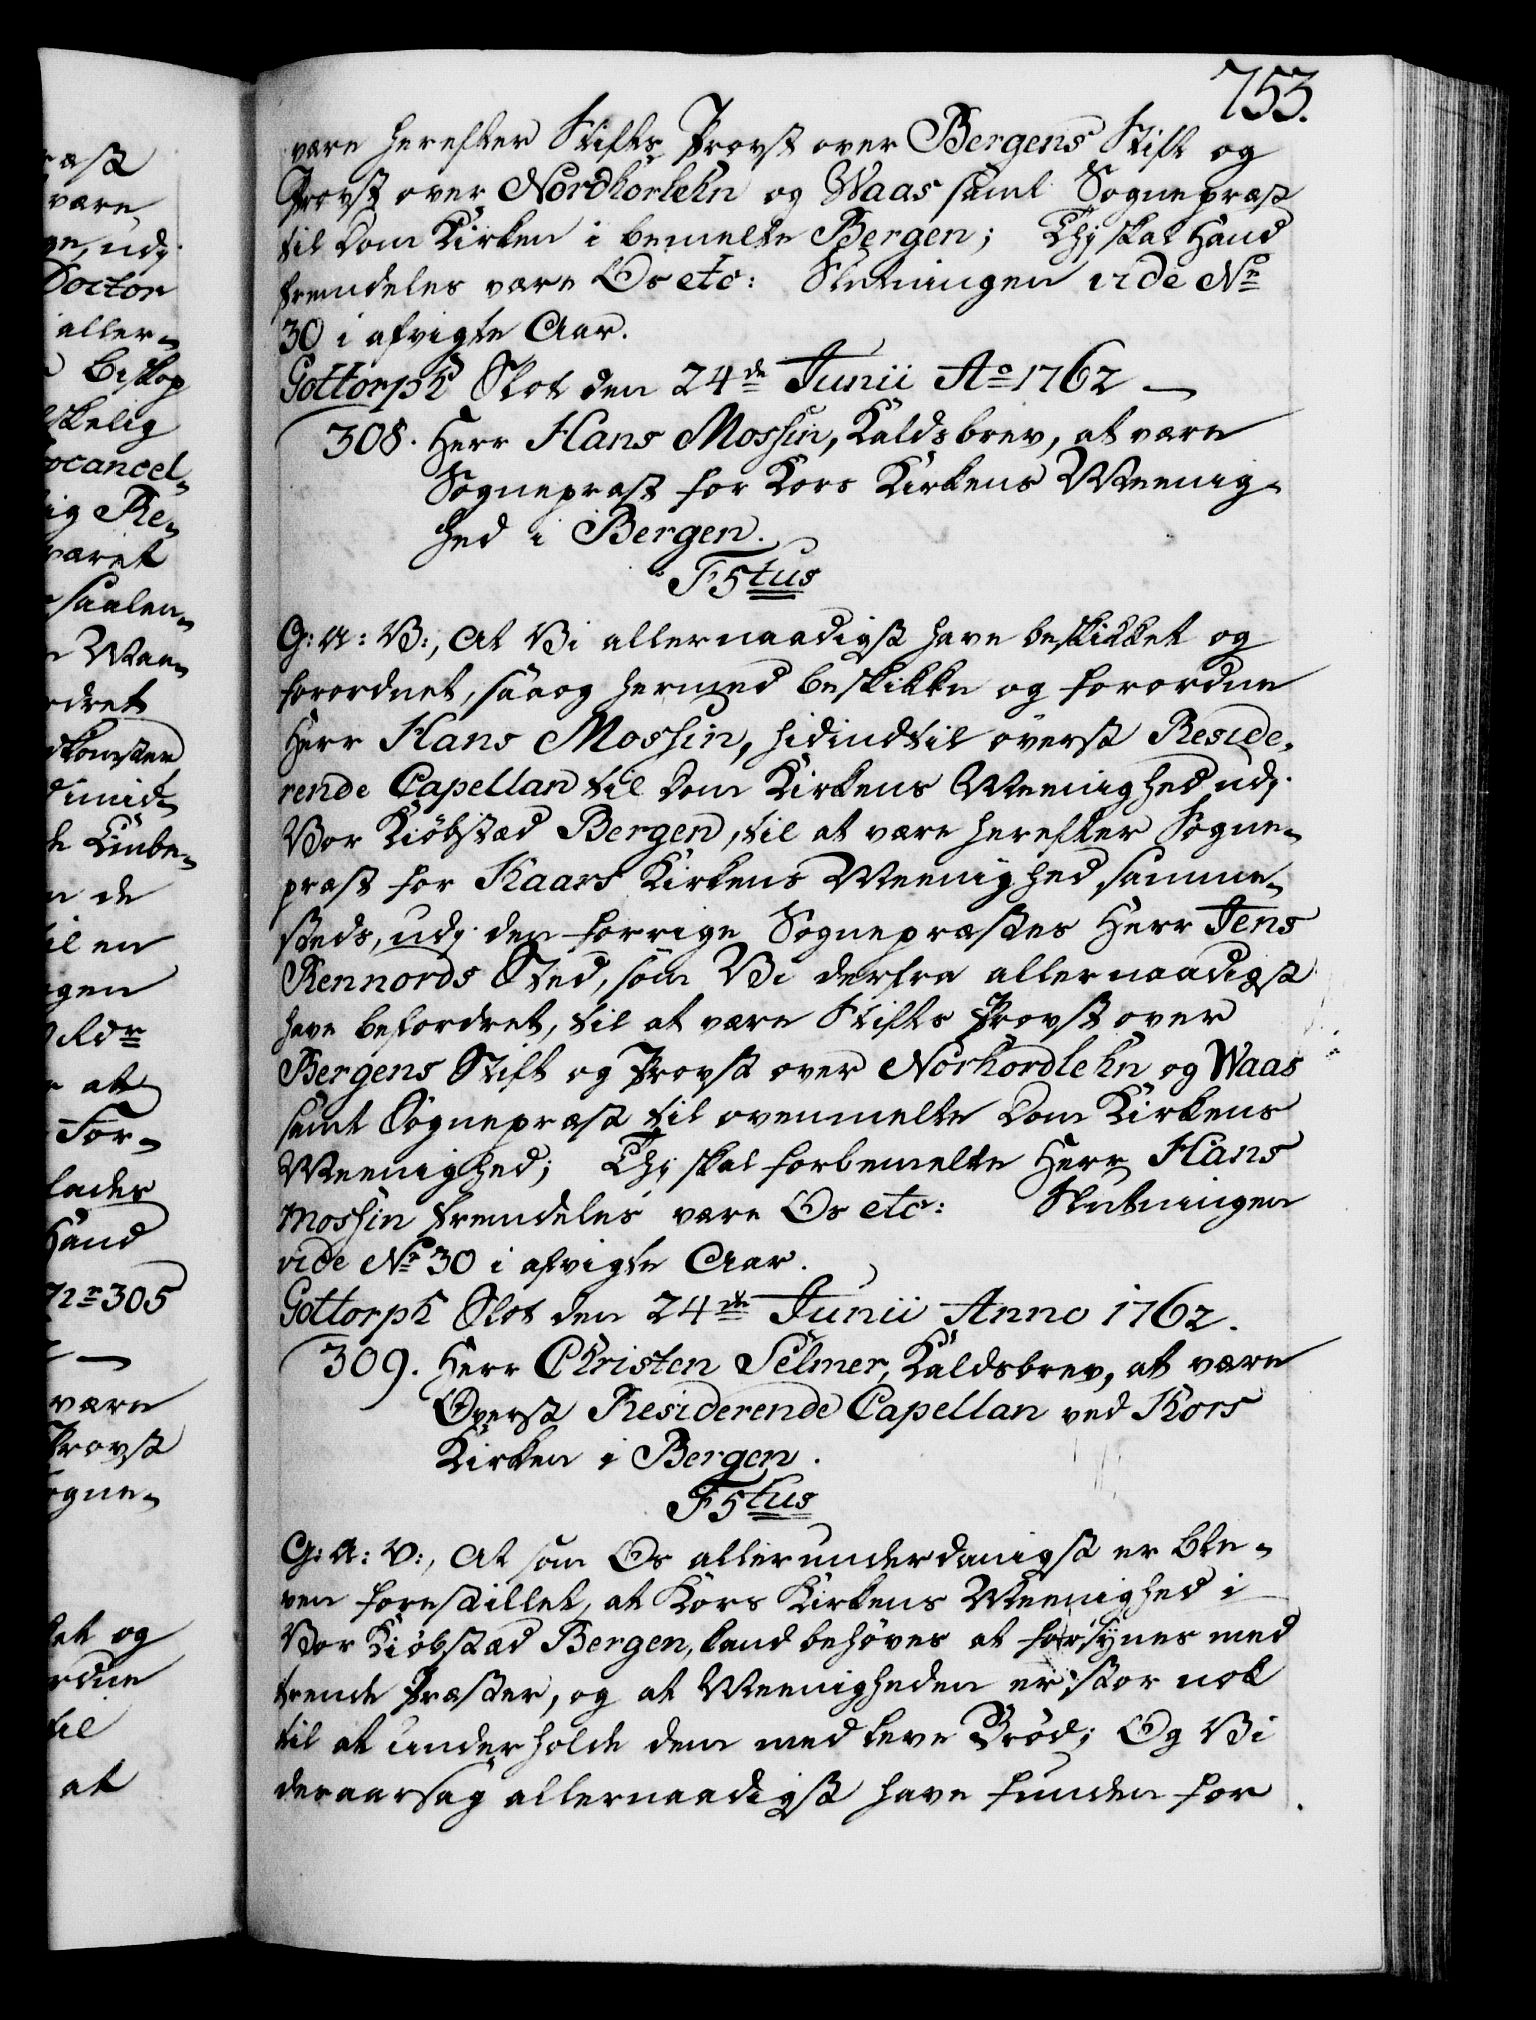 753.
være herefter Stifts Provst over Bergens Stift og
Provst over Nordhorlehn og Waas samt Sognepræst
til Dom Kirken i bemelte Bergen; Thj skal Hand
fremdeles være Os etc: Slutningen vide No
30 i afvigte Aar.
Gottorph Slot den 24de Junii Ao 1762 —
308. Herr Hans Mossin, Kaldsbrev, at være
Sognepræst for Kors Kirkens Meenig-
hed i Bergen.
F5tus
G: A: V:, At Vi allernaadigst have beskikket og
forordnet, saaog hermed beskikke og forordne
Herr Hans Mossin, hidindtil øverst Reside-
rende Capellan til Dom Kirkens Meenighed udj
Vor Kiøbstæd Bergen, til at være herefter Sogne-
præst for Kaars Kirkens Meenighed samme-
steds, udj den forrige Sognepræstes Herr Jens
Rennords Sted, som Vi derfra allernaadigst
have befordret, til at være Stifts Provst over
Bergens Stift og Provst over Norhordlehn og Waas
samt Sognepræst til ovenmelte Dom Kirkens
Meenighed; Thj skal forbemelte Herr Hans
Mossin fremdeles være Os etc: Slutningen
vide No 30 i afvigte Aar.
Gottorph Slot den 24de Junii Anno 1762.
309. Herr Christen Selmer, Kaldsbrev, at være
Øverst Residerende Capellan ved Kors
Kirken i Bergen.
F5tus
G: A: V:, At som Os allerunderdanigst er ble-
ven forestillet, at Kors Kirkens Meenighed i
Vor Kiøbstæd Bergen, kand behøves at forsynes med
trende Præster, og at Meenigheden er stor nok
til at underholde dem med leve Brød; Og Vi
deraarsag allernaadigst have funden for